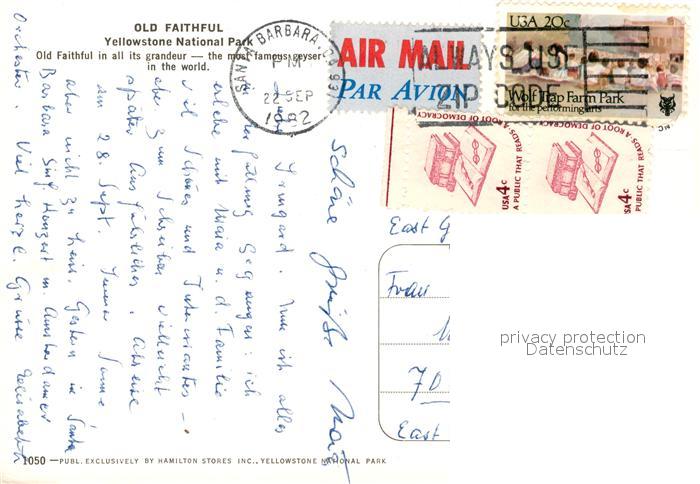 OLD FAITHFUL
Yellowstone National Park
Old Faithful in all its grandeur — the most famous geyser
in the world.
SANTA BARBARA, CA 931
PM
22 SEP
1982
AIR MAIL
PAR AVION
ALWAYS USE
ZIP CODE
USA 20c
Wolf Trap Farm Park
for the performing arts
A ROOT OF DEMOCRACY
USA 4c
A PUBLIC THAT READS
USA 4c
PUBLIC THAT READS
Irmgard. Nun ist alles
in Erfüllung gegangen: ich
erlebe mit Maia u. d. Familie
viel Schönes und Interessantes –
zum Schreiben vielleicht
später Ausführlicher. Abreise
am 28. Sept. Immer Sonne
aber nicht zu heiss. Gestern in Santa
Barbara Konzert m. Amsterdamer
Orchester. Viel herzl. Grüsse Elisabeth
schöne Grüße
East G
Frau
70
East
privacy protection
Datenschutz
1050 — PUBL. EXCLUSIVELY BY HAMILTON STORES INC., YELLOWSTONE NATIONAL PARK